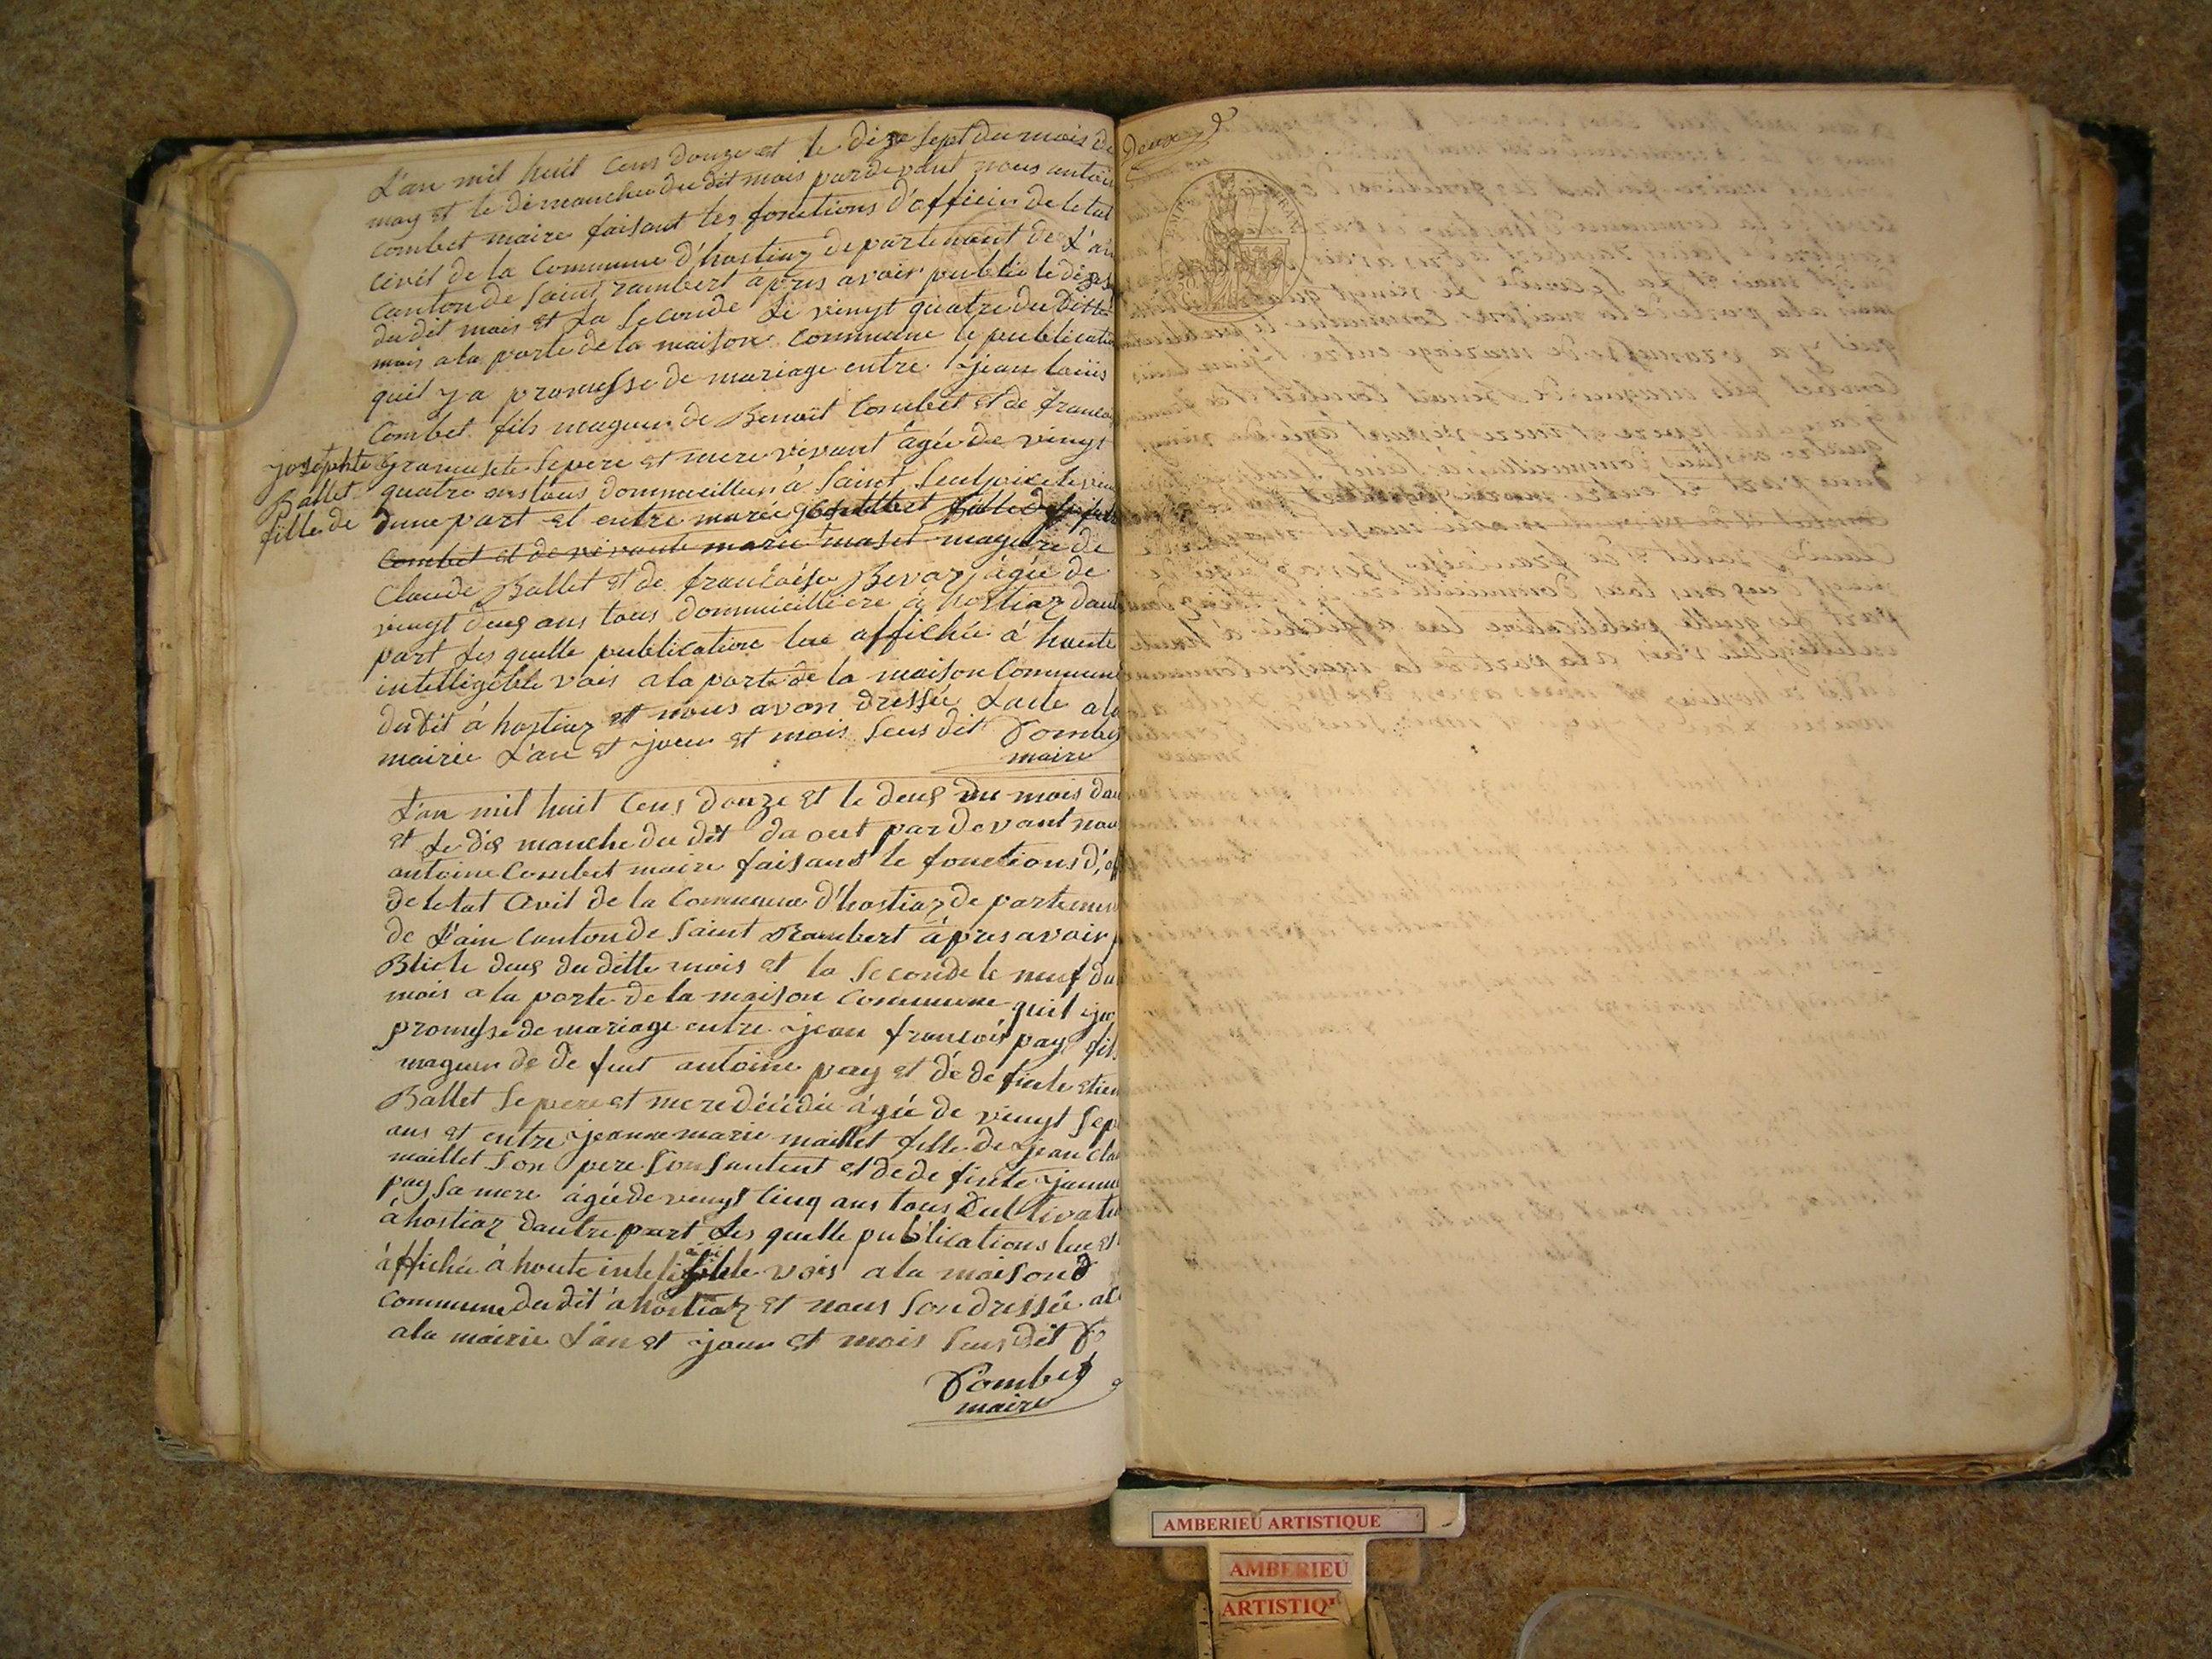 L'an mil huit Cens douze et le dize Sept du mois de
may et le dimanche du dit mois pardevant nous antoi
Combet maire faisant les fonctions d'officier de letat
Civil de la Commune d'hostiaz departement de L'ain
Canton de Saint rambert àpres avoir publié le dizes
du dit mois et La Seconde Le vingt quatre du ditte
mois a la porte de la maison Commune le publicatio
quil y a promesse de mariage entre jean Louis
Combet fils mageur de Benoit Combet et de francoi
Se pere et mere vivant âgée de vingt
quatre ans tous dommeillier à Saint
dune part et entre marie
Combet et de vivante marie maset mageure de
josephte
Ballet
fille de
Claude Ballet et de francoise Bevaz âgée de
vingt deus ans tous dommicilliere à hostiaz dautre
part Les quelle publication lue affichée à haute
intelligible vois a la porte de la maison Commune
du dit à hostiaz et nous avon dressée Lacte a la
mairie L'an et jour et mois Sus dit Combet
maire
L'an mil huit Cens douze et le deus du mois dao
et Le dis manche du dit da out par devant nou
antoine Combet maire faisant le fonctions d'of
de letat Civil de la Commune d'hostiaz de partemen
de L'ain Canton de Saint Rambert âpres avoir p
Blie le deus du ditte mois et la Seconde le neuf du
mois a la porte de la maison Commune quil ya
promesse de mariage entre jean francois pay fils
mageur de de feut antoine pay et dé de finte etien
Ballet Se pere et mere décédée âgée de vingt Sept
ans et entre jeanne marie maillet fille de jean Cla
maillet Son pere Consantent et dede finte jeanne
pay Sa mere âgée de vingt Cinq ans tous Cultivate
à hostiaz dautre part Les quelle publications lue et
àffichée à haute inteligible vois a la maison d
Commune du dit à hostiaz et nous Son dressée ac
a la mairie L'an et jour et mois Sus dit
Combet
maire
Deuxe
AMBERIEU ARTISTIQUE
AMBERIEU
ARTISTIQ